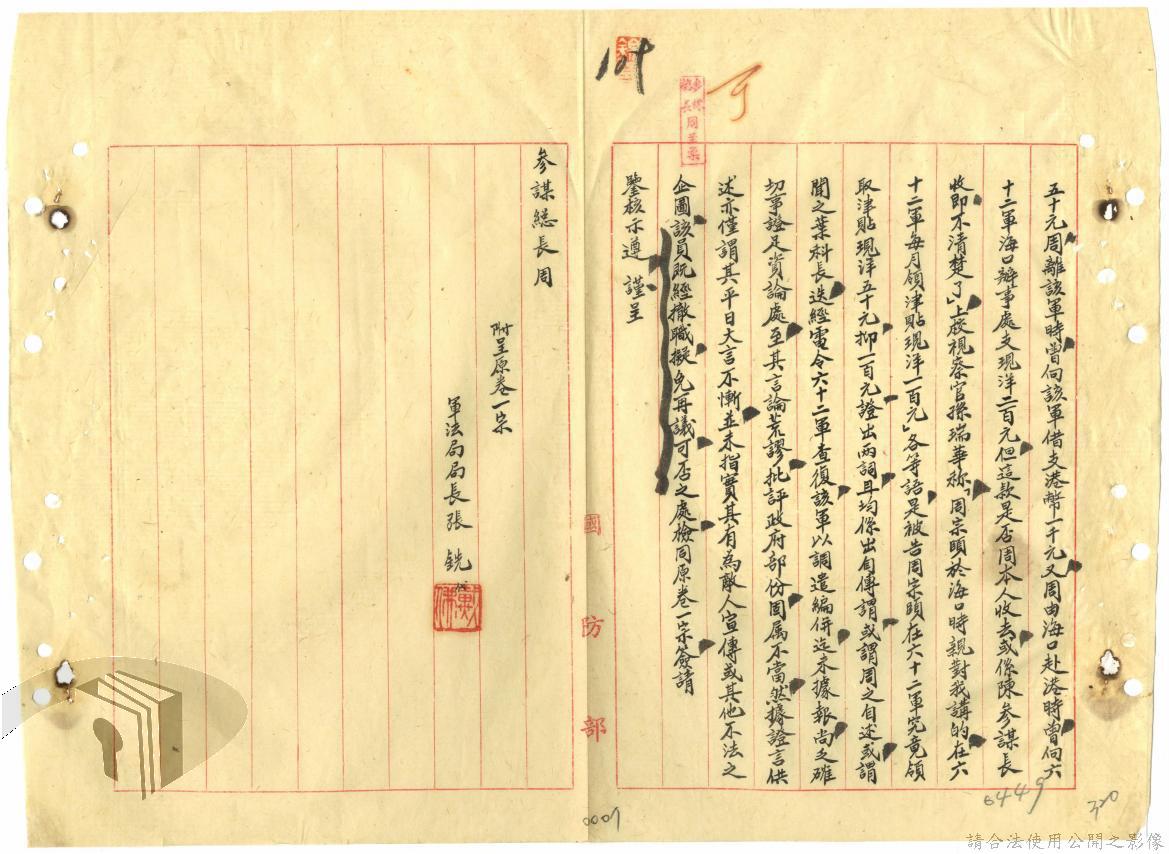 五十元周離該軍時曾向該軍借支港幣一千元又周由海口赴港時曾向六
十二軍海口辦事處支現洋二百元但這款是否周本人收去或係陳參謀長
收即不清楚了」上校視察官孫瑞華称「周宗頤於海口時親對我講的在六
十二軍每月領津貼現洋一百元」各等語是被告周宗頤在六十二軍究竟領
取津貼現洋五十元抑一百元證出兩詞且均係出自傳謂或謂周之自述或謂
聞之葉科長迭經電令六十二軍查復該軍以調遣編併迄未據報尚乏確
切事證足資論處至其言論荒謬批評政府部份固属不當然據證言供
述亦僅謂其平日大言不慚並未指實其有為敵人宣傳或其他不法之
企圖該員既經撤職擬免再議可否之處檢同原卷一宗簽請
鑒核示遵 謹呈
參謀總長周
附呈原卷一宗
軍法局局長張
國防部
可
參謀總長周至柔
6449
320
0007
請合法使用公開之影像